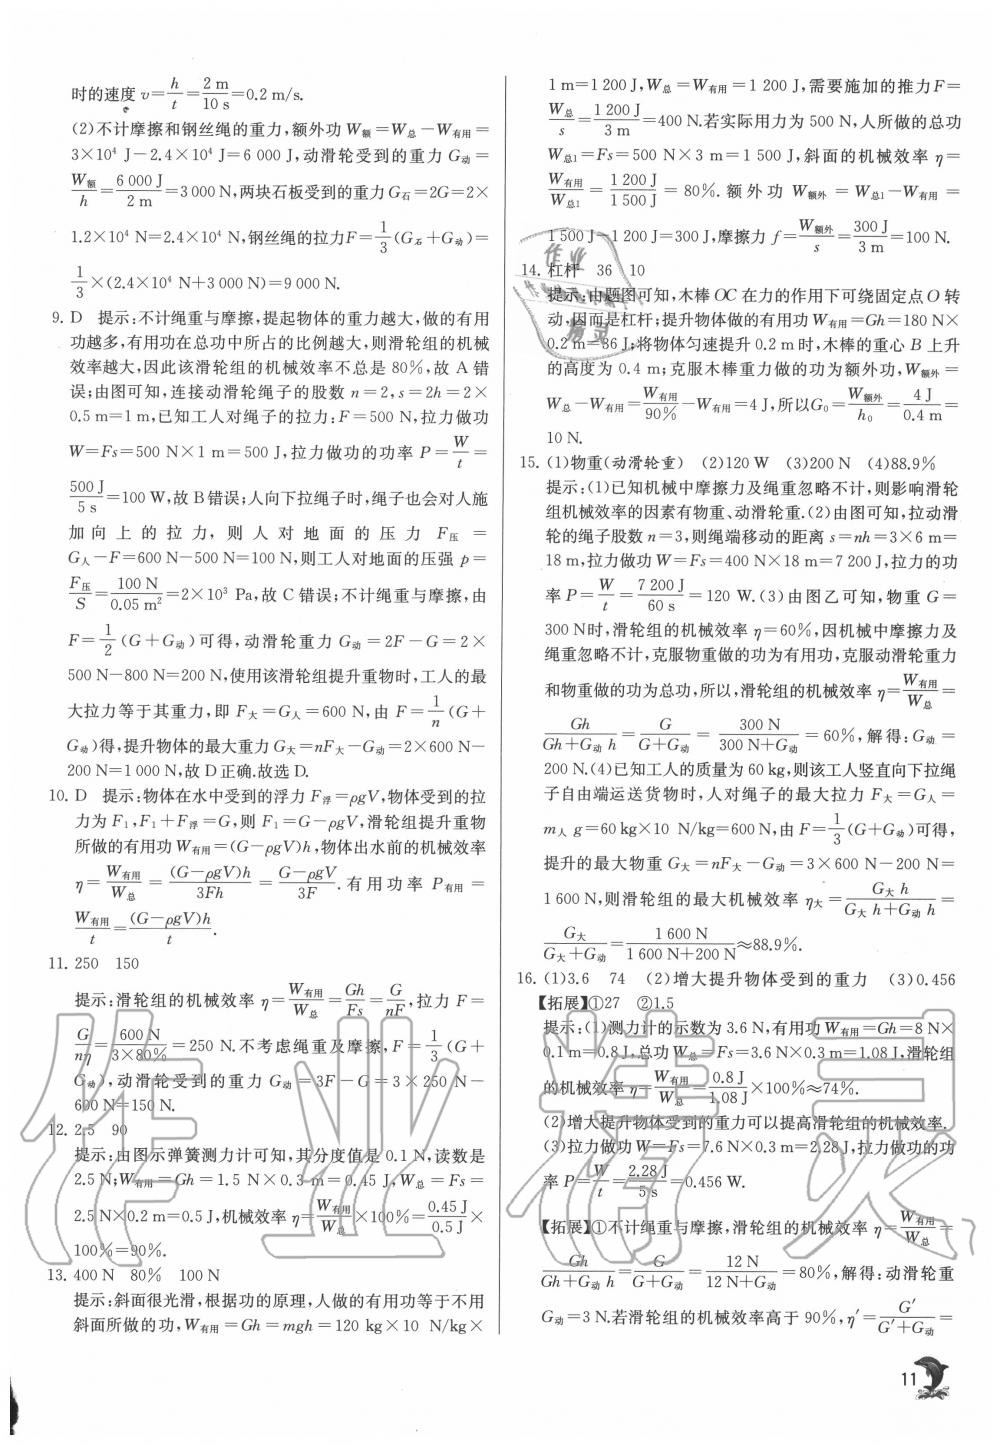 时的速度 v=h/t=2 m/10 s=0.2 m/s.
(2)不计摩擦和钢丝绳的重力,额外功 W额=W总-W有用=
3×10⁴ J-2.4×10⁴ J=6 000 J,动滑轮受到的重力 G动=
W额/h=6 000 J/2 m=3 000 N,两块石板受到的重力 G石=2G=2×
1.2×10⁴ N=2.4×10⁴ N,钢丝绳的拉力F=1/3(G石+G动)=
1/3×(2.4×10⁴ N+3 000 N)=9 000 N.
9. D 提示:不计绳重与摩擦,提起物体的重力越大,做的有用
功越多,有用功在总功中所占的比例越大,则滑轮组的机械
效率越大,因此该滑轮组的机械效率不总是 80%,故 A 错
误;由图可知,连接动滑轮绳子的股数 n=2,s=2h=2×
0.5 m=1 m,已知工人对绳子的拉力:F=500 N,拉力做功
W=Fs=500 N×1 m=500 J,拉力做功的功率 P=W/t=
500 J/5 s=100 W,故 B错误;人向下拉绳子时,绳子也会对人施
加向上的拉力,则人对地面的压力 F压=
G人-F=600 N-500 N=100 N,则工人对地面的压强 p=
F压/S=100 N/0.05 m²=2×10³ Pa,故 C 错误;不计绳重与摩擦,由
F=1/2(G+G动)可得,动滑轮重力 G动=2F-G=2×
500 N-800 N=200 N,使用该滑轮组提升重物时,工人的最
大拉力等于其重力,即 F大=G人=600 N,由 F=1/n(G+
G动)得,提升物体的最大重力 G大=nF大-G动=2×600 N-
200 N=1 000 N,故 D正确.故选 D.
10. D 提示:物体在水中受到的浮力 F浮=ρgV,物体受到的拉
力为 F₁,F₁+F浮=G,则 F₁=G-ρgV,滑轮组提升重物
所做的有用功 W有用=(G-ρgV)h,物体出水前的机械效率
η=W有用/W总=(G-ρgV)h/3Fh=G-ρgV/3F.有用功率 P有用=
W有用/t=(G-ρgV)h/t.
11. 250 150
提示:滑轮组的机械效率 η=W有用/W总=Gh/Fs=G/nF,拉力 F=
G/nη=600 N/3×80%=250 N.不考虑绳重及摩擦,F=1/3(G+
G动),动滑轮受到的重力 G动=3F-G=3×250 N-
600 N=150 N.
12. 2.5 90
提示:由图示弹簧测力计可知,其分度值是 0.1 N,读数是
2.5 N;W有用=Gh=1.5 N×0.3 m=0.45 J,W总=Fs=
2.5 N×0.2 m=0.5 J,机械效率 η=W有用/W总×100%=0.45 J/0.5 J×
100%=90%.
13. 400 N 80% 100 N
提示:斜面很光滑,根据功的原理,人做的有用功等于不用
斜面所做的功,W有用=Gh=mgh=120 kg×10 N/kg×
1 m=1 200 J,W总=W有用=1 200 J,需要施加的推力 F=
W总/s=1 200 J/3 m=400 N.若实际用力为 500 N,人所做的总功
W总1=Fs=500 N×3 m=1 500 J,斜面的机械效率 η=
W有用/W总1=1 200 J/1 500 J=80%.额外功 W额外=W总1-W有用=
1 500 J-1 200 J=300 J,摩擦力 f=W额外/s=300 J/3 m=100 N.
14. 杠杆 36 10
提示:由题图可知,木棒 OC 在力的作用下可绕固定点 O 转
动,因而是杠杆;提升物体做的有用功 W有用=Gh=180 N×
0.2 m=36 J;将物体匀速提升 0.2 m时,木棒的重心 B 上升
的高度为 0.4 m;克服木棒重力做的功为额外功,W额外=
W总-W有用=W有用/90%-W有用=4 J,所以G₀=W额外/h₀=4 J/0.4 m=
10 N.
15. (1)物重(动滑轮重) (2)120 W (3)200 N (4)88.9%
提示:(1)已知机械中摩擦力及绳重忽略不计,则影响滑轮
组机械效率的因素有物重、动滑轮重.(2)由图可知,拉动滑
轮的绳子股数 n=3,则绳端移动的距离 s=nh=3×6 m=
18 m,拉力做功 W=Fs=400 N×18 m=7 200 J,拉力的功
率 P=W/t=7 200 J/60 s=120 W.(3)由图乙可知,物重 G=
300 N时,滑轮组的机械效率 η=60%,因机械中摩擦力及
绳重忽略不计,克服物重做的功为有用功,克服动滑轮重力
和物重做的功为总功,所以,滑轮组的机械效率 η=W有用/W总=
Gh/Gh+G动h=G/G+G动=300 N/300 N+G动=60%,解得:G动=
200 N.(4)已知工人的质量为 60 kg,则该工人竖直向下拉绳
子自由端运送货物时,人对绳子的最大拉力 F大=G人=
m人 g=60 kg×10 N/kg=600 N,由 F=1/3(G+G动)可得,
提升的最大物重 G大=nF大-G动=3×600 N-200 N=
1 600 N,则滑轮组的最大机械效率 η大=G大h/G大h+G动h=
G大/G大+G动=1 600 N/1 600 N+200 N≈88.9%.
16. (1)3.6 74 (2)增大提升物体受到的重力 (3)0.456
【拓展】①27 ②1.5
提示:(1)测力计的示数为 3.6 N,有用功 W有用=Gh=8 N×
0.1 m=0.8 J,总功 W总=Fs=3.6 N×0.3 m=1.08 J,滑轮组
的机械效率 η=W有用/W总=0.8 J/1.08 J×100%≈74%.
(2)增大提升物体受到的重力可以提高滑轮组的机械效率.
(3)拉力做功 W=Fs=7.6 N×0.3 m=2.28 J,拉力做功的功
率 P=W/t=2.28 J/5 s=0.456 W.
【拓展】①不计绳重与摩擦,滑轮组的机械效率 η=W有用/W总=
Gh/Gh+G动h=G/G+G动=12 N/12 N+G动=80%,解得:动滑轮重
G动=3 N.若滑轮组的机械效率高于 90%,η′=G′/G′+G动=
11
作业精灵